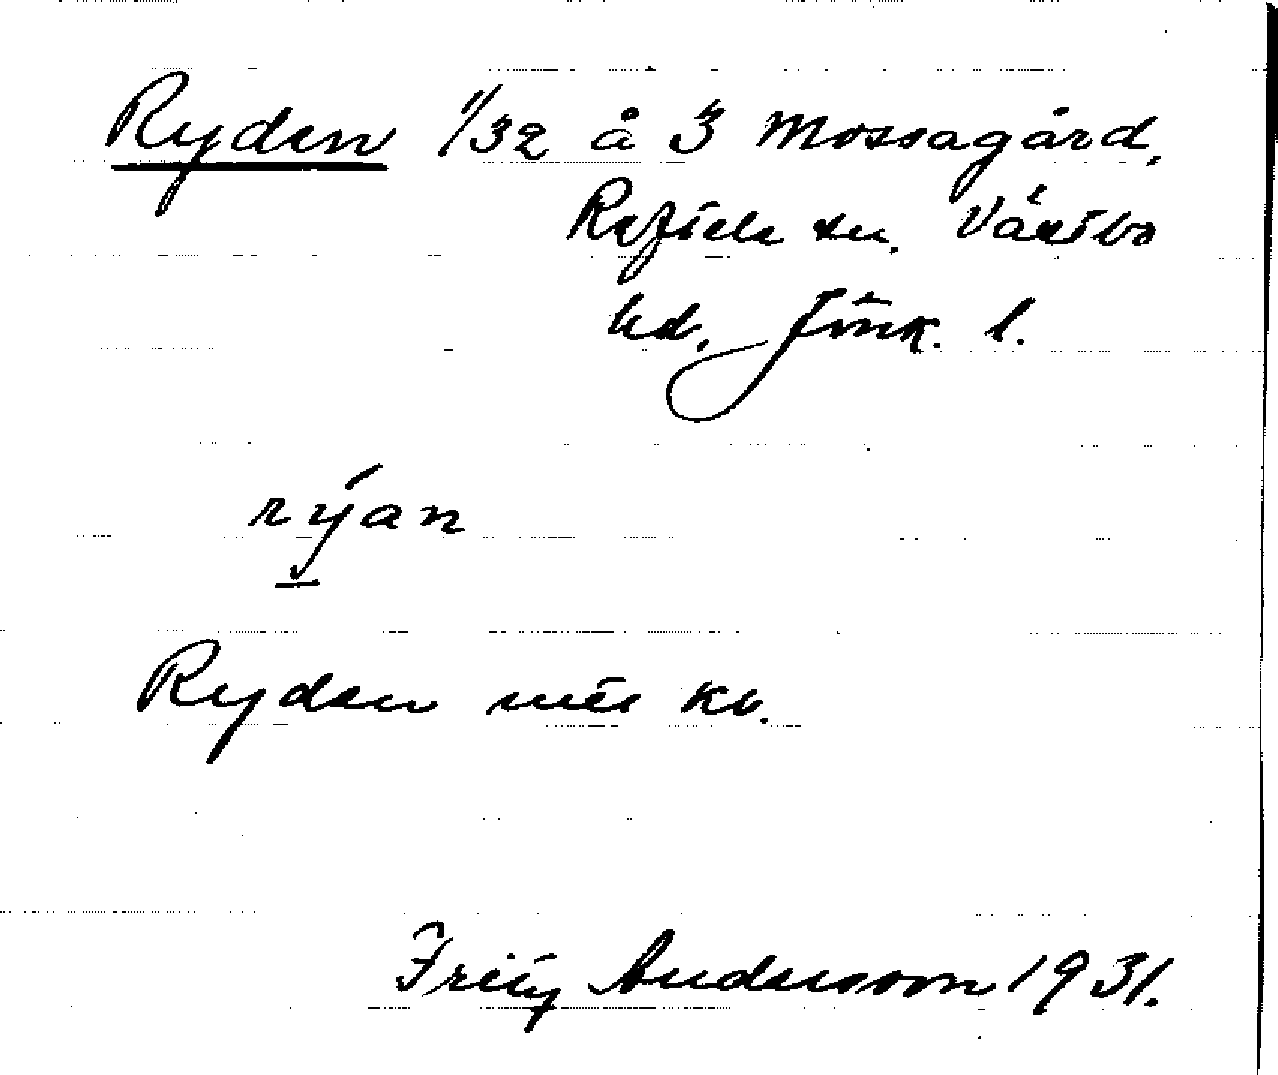 Ryden 1/32 å 3 Mossagård,
Reftele sn. Västbo
hd, Jönk. l.
rýan
Ryden utěs kv.
Fritz Andersson 1931.